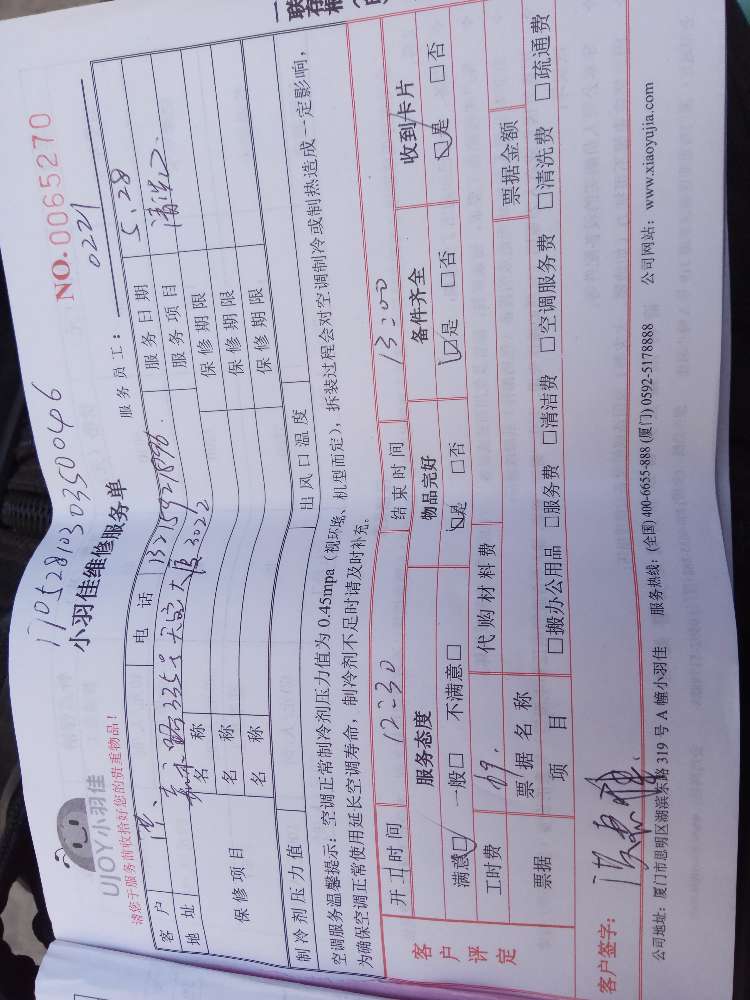 17052810303500046
NO.0065270
UJOY小羽佳
小羽佳维修服务单
请您于服务前收拾好您的贵重物品!
服务员工: 0221
客户 电话 服务日期 5.28
地址 335号 大厦3022 服务项目
保修项目
名称 保修期限
名称 保修期限
名称 保修期限
制冷剂压力值 出风口温度
空调服务温馨提示: 空调正常制冷剂压力值为 0.45mpa (视环境、机型而定), 拆装过程会对空调制冷或制热造成一定影响,
为确保空调正常使用延长空调寿命, 制冷剂不足时请及时补充。
客户评定
开工时间 12:30 结束时间 13:00
服务态度 物品完好 备件齐全 收到卡片
满意☑ 一般□ 不满意□ ☑是 □否 ☑是 □否 ☑是 □否
工时费 69. 代购材料费
票据 票据名称 票据金额
项目 □搬办公用品 □服务费 □清洁费 □空调服务费 □清洗费 □疏通费
客户签字:
公司地址: 厦门市思明区湖滨东路 319 号 A 幢小羽佳 服务热线: (全国) 400-6655-888 (厦门) 0592-5178888 公司网站: www.xiaoyujia.com
一联存根